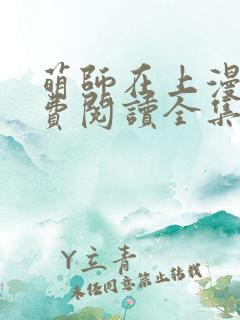 萌師在上漫
費閱讀全集
Y立青
未任同意禁止转载